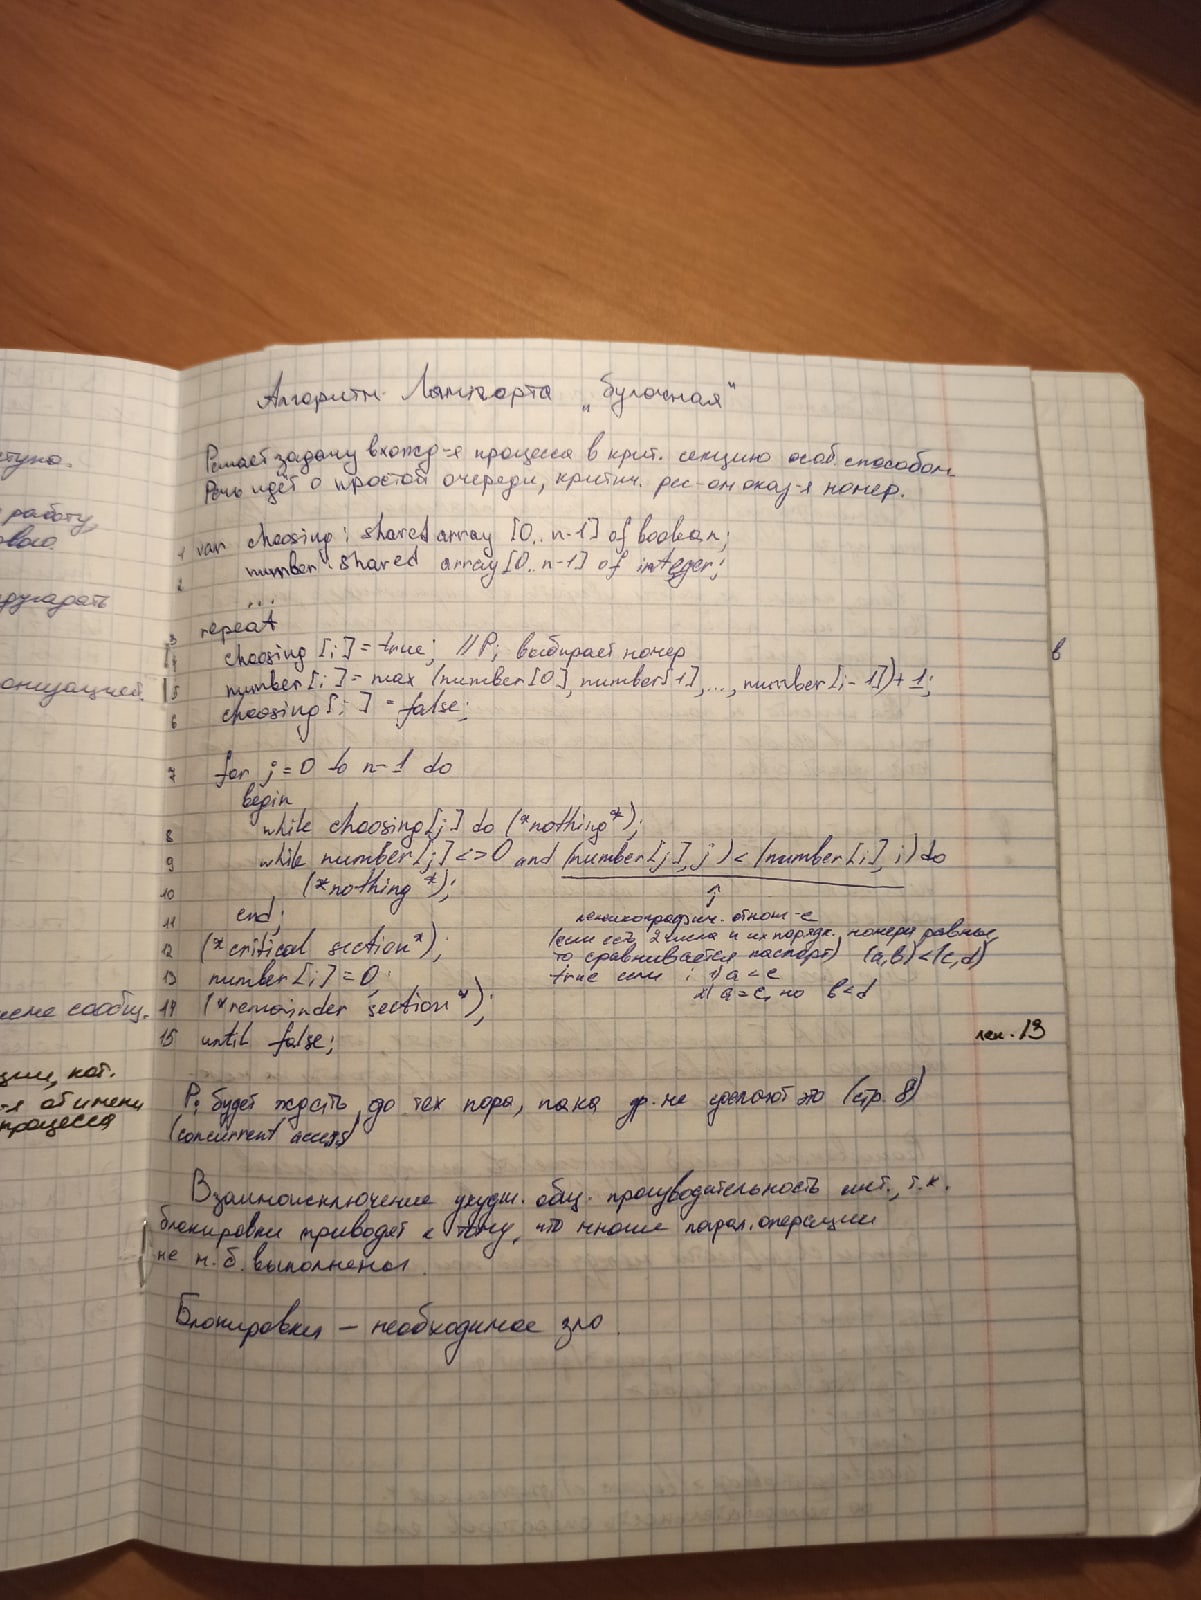 ступа.
работу,
ового
другарать
онизацией.
ме сообщ.
ции, кот.
-я от имени
процесса
Алгоритм Лампорта „булочная"
Решает задачу вхожд-я процесса в крит. секцию особ. способом
Речь идёт о простой очереди, критич. рес-ом оказ-я номер.
1 var choosing: shared array [0..n-1] of boolean;
2 number: shared array [0..n-1] of integer;
...
3 repeat
4 choosing [i] = true; // Pi выбирает номер
5 number[i] = max (number[0], number[1], ..., number[i-1])+1;
6 choosing[i] = false;
7 for j = 0 to n-1 do
begin
8 while choosing[j] do (*nothing*);
9 while number[j] <> 0 and (number[j], j) < (number[i], i) do
10 (*nothing*);
11 end;
12 (*critical section*);
13 number[i] = 0;
14 (*remainder section*);
15 until false;
↑
лексикографич. отнош-е
(если есть 2 числа и их порядк. номера равные,
то сравнивается паспорт) (a,b)<(c,d)
true если: 1) a < c
2) a = c, но b < d
в
лек. 13
Pi будет ждать до тех пора, пока др. не сделают это (стр. 8)
(concurrent access)
Взаимоисключение ухудш. общ. производительность инт., т.к.
блокировки приводят к тому, что многие парал. операции
не м.б. выполнены.
Блокировки — необходимое зло.